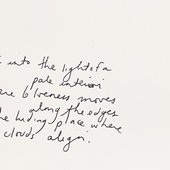 into the light of a
pale interior
moves
along the edges
hiding place where
clouds align.